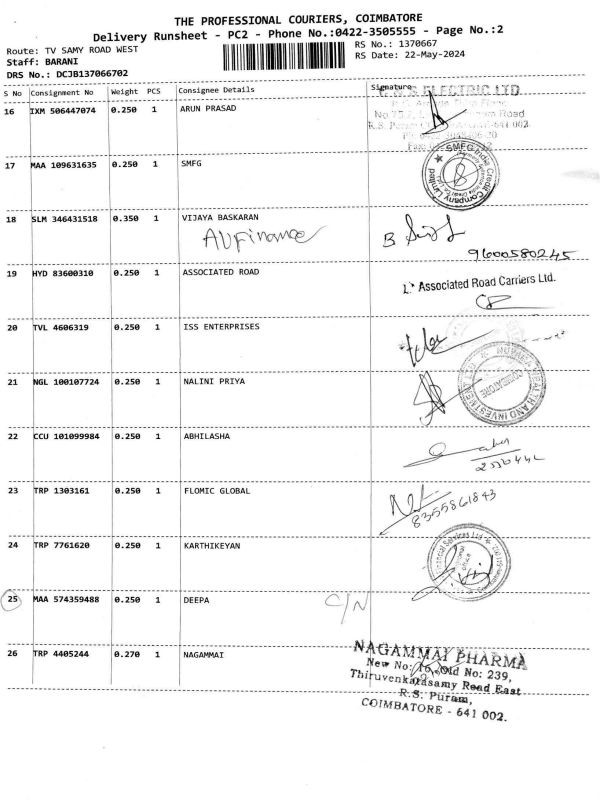 THE PROFESSIONAL COURIERS, COIMBATORE
Delivery Runsheet - PC2 - Phone No.:0422-3505555 - Page No.:2
Route: TV SAMY ROAD WEST
RS No.: 1370667
Staff: BARANI
RS Date: 22-May-2024
DRS No.: DCJB137066702
S No Consignment No Weight PCS Consignee Details Signature
16 IXM 506447074 0.250 1 ARUN PRASAD
ELECTRIC LTD
17 MAA 109631635 0.250 1 SMFG
SMFG India Credit Company Limited
18 SLM 346431518 0.350 1 VIJAYA BASKARAN
AU Finance
9600580245
19 HYD 83600310 0.250 1 ASSOCIATED ROAD
Associated Road Carriers Ltd.
20 TVL 4606319 0.250 1 ISS ENTERPRISES
21 NGL 100107724 0.250 1 NALINI PRIYA
NUVAMA WEALTH AND INVESTMENT LTD
COIMBATORE
22 CCU 101099984 0.250 1 ABHILASHA
23 TRP 1303161 0.250 1 FLOMIC GLOBAL
8355861843
24 TRP 7761620 0.250 1 KARTHIKEYAN
Financial Services Ltd
25 MAA 574359488 0.250 1 DEEPA
C/N
26 TRP 4405244 0.270 1 NAGAMMAI
NAGAMMAI PHARMA
New No: 16, Old No: 239,
Thiruvenkatasamy Road East
R.S. Puram,
COIMBATORE - 641 002.